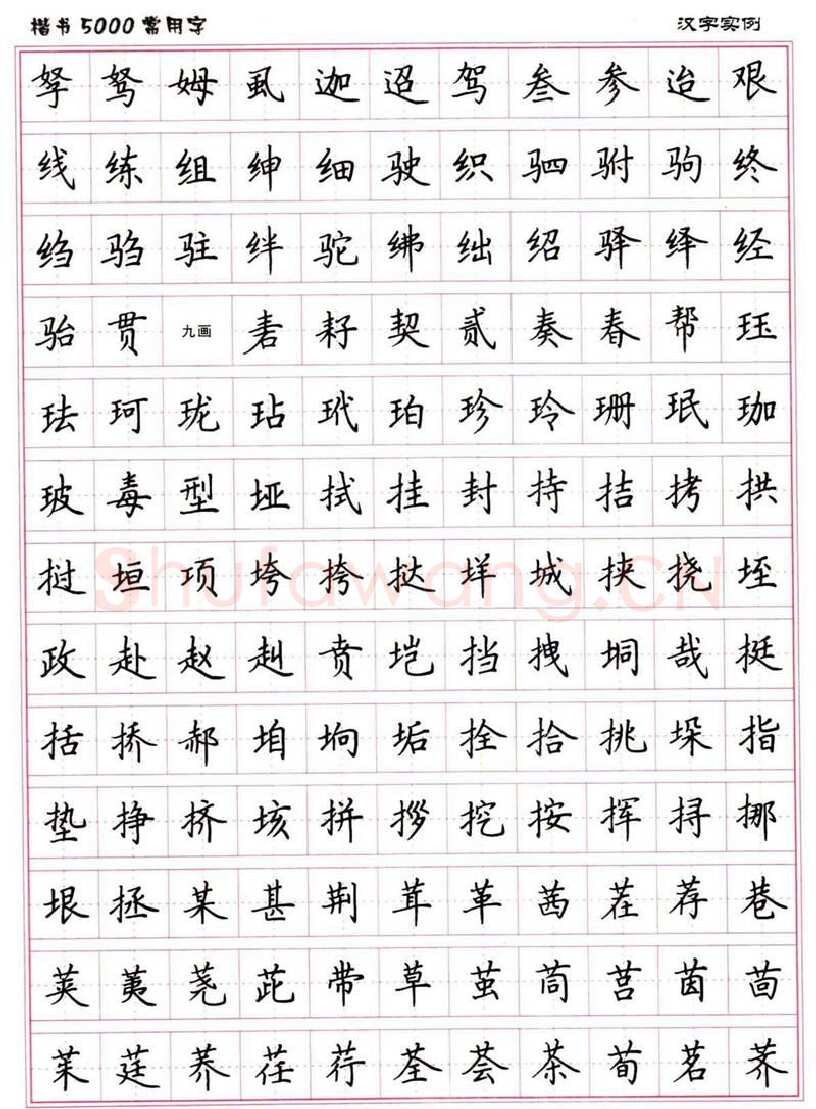 楷书5000常用字 汉字实例
孥 驽 姆 虱 迦 迢 驾 叁 参 迨 艰
线 练 组 绅 细 驶 织 驷 驸 驹 终
绉 驺 驻 绊 驼 绋 绌 绍 驿 绎 经
骀 贯 九画 砉 耔 契 贰 奏 春 帮 珏
珐 珂 珑 玷 玳 珀 珍 玲 珊 珉 珈
玻 毒 型 垭 拭 挂 封 持 拮 拷 拱
挝 垣 项 垮 挎 挞 垟 城 挟 挠 垤
shufawang.CN
政 赴 赵 赳 贲 垲 挡 拽 垌 哉 挺
括 挢 郝 垍 垧 垢 拴 拾 挑 垛 指
垫 挣 挤 垓 拼 拶 挖 按 挥 挦 挪
垠 拯 某 甚 荆 茸 革 茜 茬 荐 巷
荚 荑 荛 茈 带 草 茧 茼 莒 茵 茴
茱 莛 荞 荏 荇 荃 荟 茶 荀 茗 荠